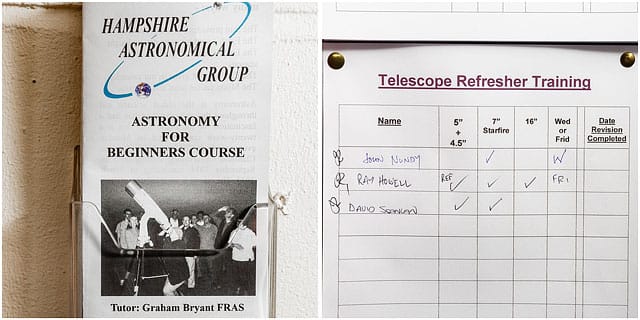 HAMPSHIRE
ASTRONOMICAL
GROUP
ASTRONOMY
FOR
BEGINNERS COURSE
Tutor: Graham Bryant FRAS
Telescope Refresher Training
Name 5" + 4.5" 7" Starfire 16" Wed or Frid Date Revision Completed
JOHN NUNDY ✓ W
RAY HOWELL REF ✓ ✓ ✓ FRI
DAVID ✓ ✓